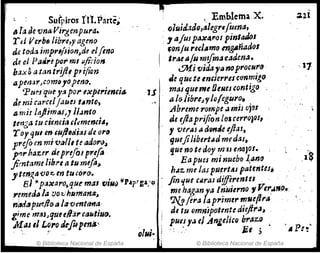 Suspiros III. Parte,
a la de vna Virgen pura.
Tu Verbo libre, y ageno
de toda imprassion, de el seno
de el Padre por mi aficion
baxò a tan triste prision
a penar, como yo peno.
Pues que ya por experiencia 15
de mi carcel sabes tanto,
a mis lastimas, y llanto
tenga tu ciencia clemencia,
Toy que en custodias de oro
preso en mi valle te adoro,
por hazer de preso presa
sientame libre a tu mesa,
y tenga voz en tu coro.
El *paxaro, que mas viuo *Papagayo
remeda la voz humana,
nada puesto a la ventana
gime mas, que estar cautiuo.
Mas el Loro de su pena
olui-
Emblema X. 221
oluidado, alegre suena,
y a sus paxaros pintados
con su reclamo engañados
trae a su misma cadena.
Mi vida ya no procuro 17
de que te encierres conmigo
mas que me lleues contigo
a lo libre, y lo seguro,
Abreme rompe a mis ojos
de esta prision los cerrojos,
y veras a donde estas,
que si libertad me das,
que no te doy mis enojos.
Ea pues mi nuebo Lano 18
haz me las puertas patentes,
sin que caras diferentes
me hagan ya Inuierno y Verano.
No sera la primer muestra
de tu omnipotente diestra,
pues ya el Angelico brazo
Ee 3 a Pe-
© Biblioteca Nacional de España
© Biblioteca Nacional de España